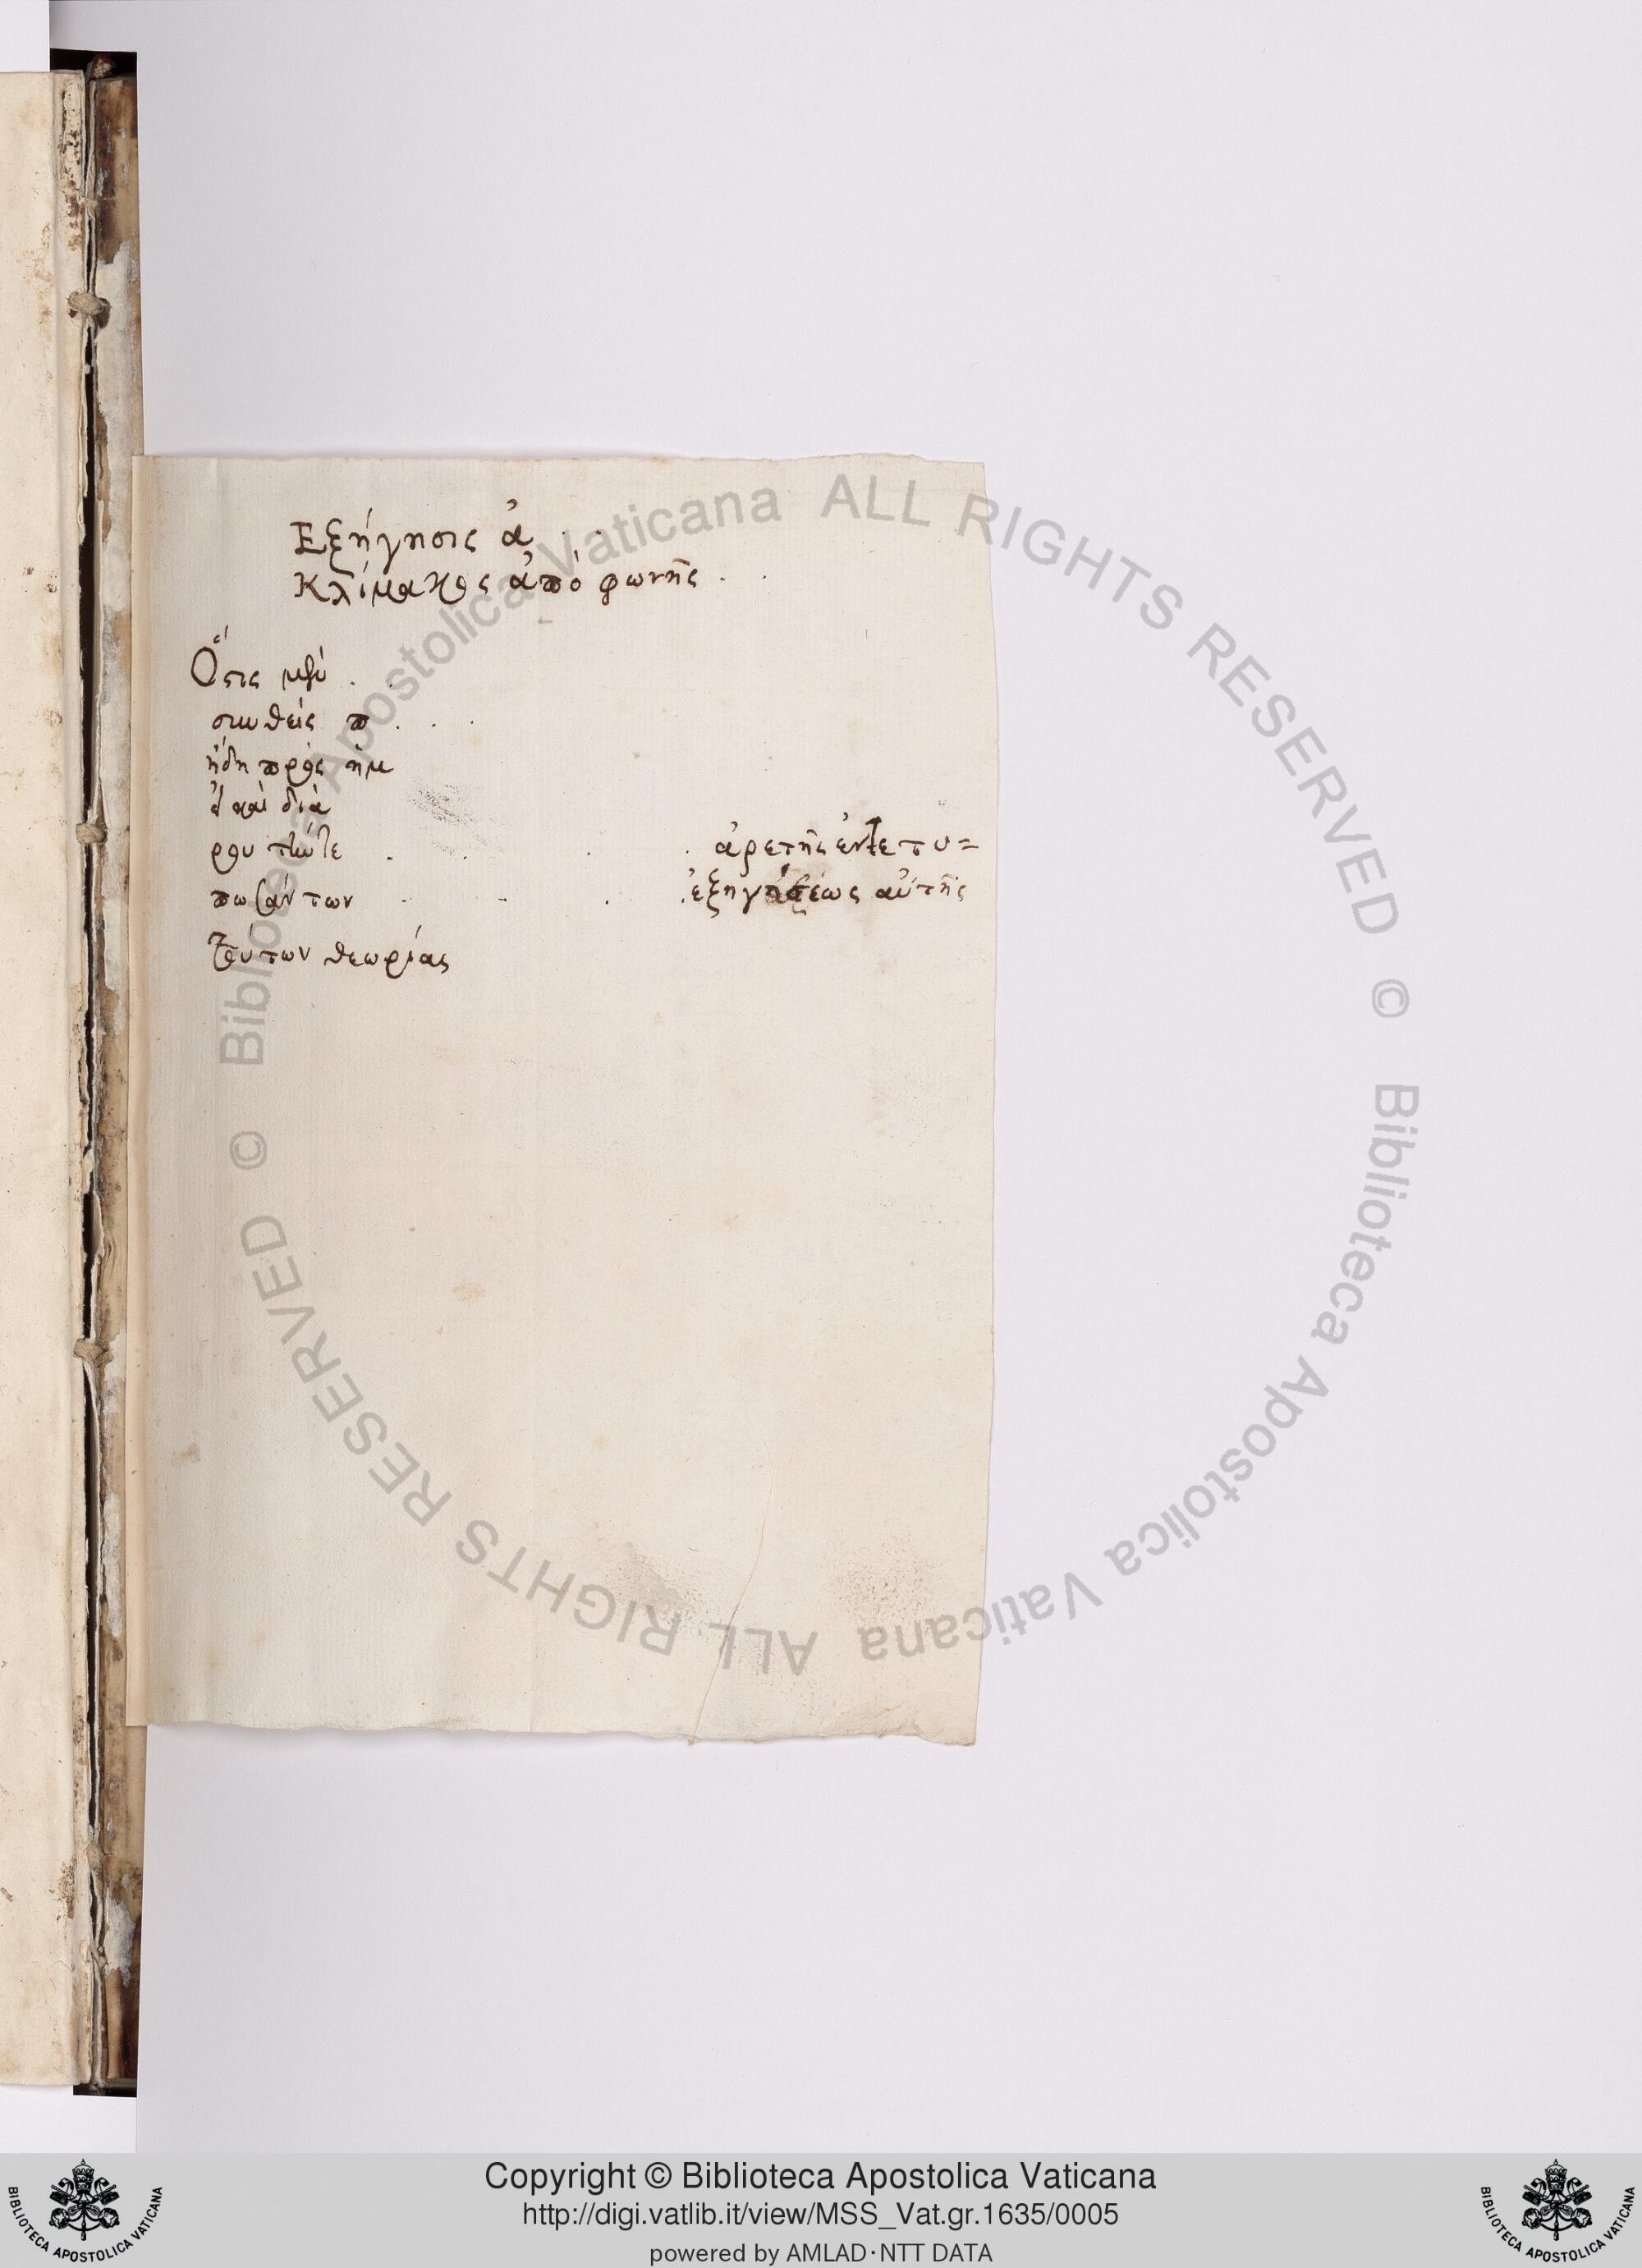 Εξήγησις ἀ . .
Κλίμακος ἀπό φωνῆς . .
Ὅστις μὲν . .
σιωθείς π . . .
ἤδη πρὸς ἡμ
καὶ διὰ
ρου τὴν . . . . ἀρετῆς ἐντετυ=
πωσάντων . . . . ἐξηγήσεως αὐτῆς
τούτων θεωρίας
© Biblioteca Apostolica Vaticana ALL RIGHTS RESERVED
© Biblioteca Apostolica Vaticana ALL RIGHTS RESERVED
BIBLIOTECA APOSTOLICA VATICANA
Copyright © Biblioteca Apostolica Vaticana
http://digi.vatlib.it/view/MSS_Vat.gr.1635/0005
powered by AMLAD·NTT DATA
BIBLIOTECA APOSTOLICA VATICANA